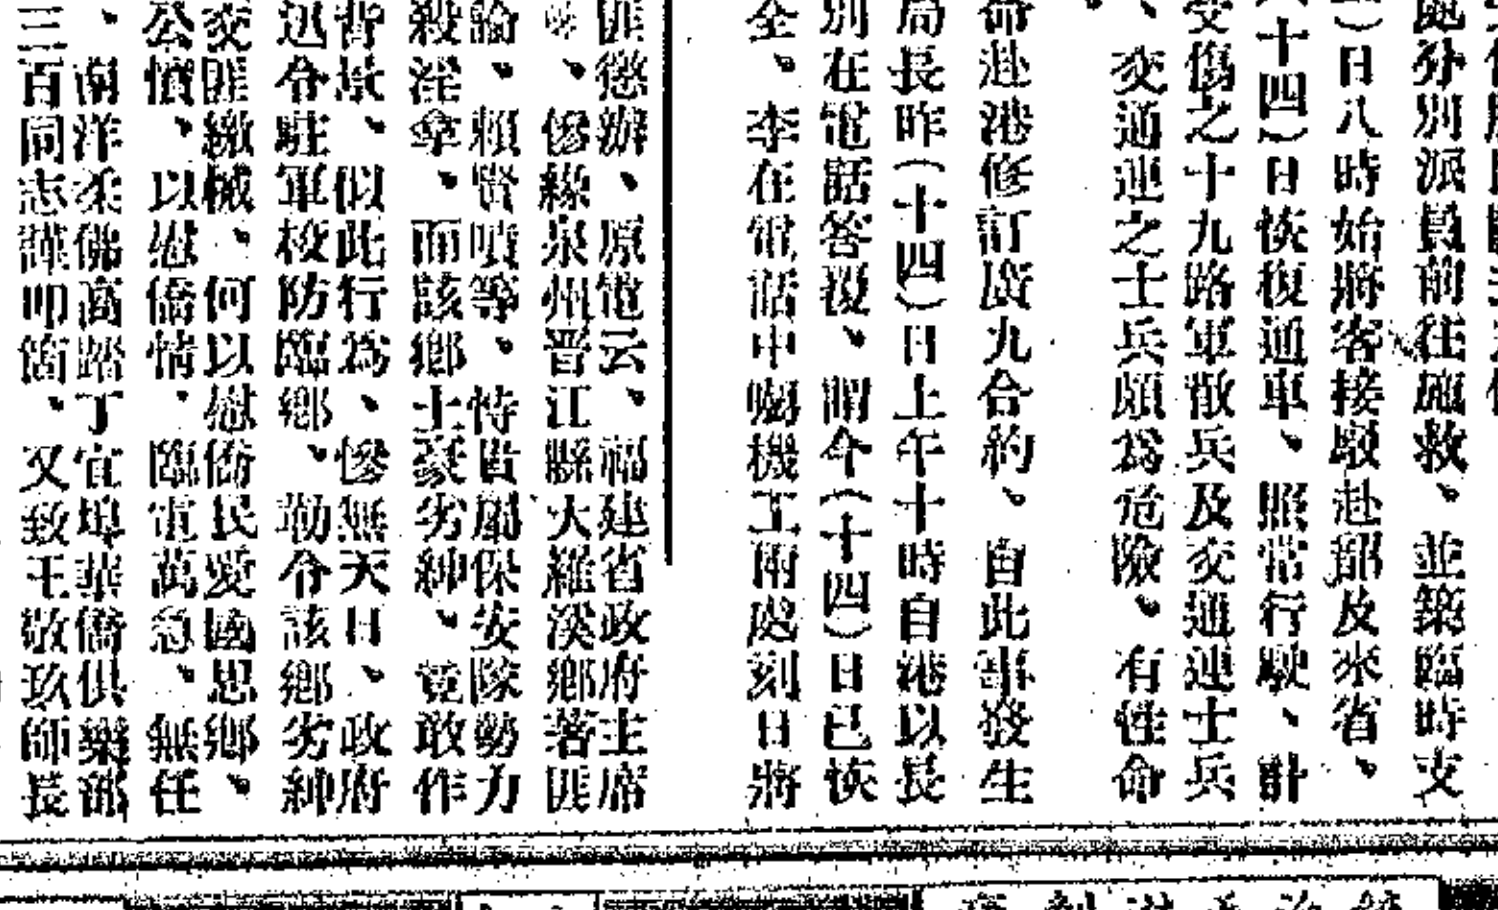 處分別派員前往施救、並築臨時支
日八時始將客接駁赴韶及來省、
十四）日恢復通車、照常行駛、計
受傷之十九路軍散兵及交通連士兵
、交通連之士兵頗爲危險、有性命
命赴港修訂廣九合約、自此事發生
局長昨（十四）日上午十時自港以長
別在電話答覆、謂今（十四）日已恢
全、李在電話中囑機工兩處刻日將
匪懲辦、原電云、福建省政府主席
、傪緣泉州晋江縣大羅溪鄉著匪
論、賴賢噴等、恃其屬保安隊勢力
殺淫拿、而該鄉土豪劣紳、竟敢作
背景、似此行爲、慘無天日、政府
迅令駐軍校防臨鄉、勒令該鄉劣紳
交匪繳械、何以慰僑民愛國思鄉、
公憤、以慰僑情、臨電萬急、無任
、南洋柔佛高踏丁宜埠華僑俱樂部
三百同志謹叩箇、又致王敬玖師長